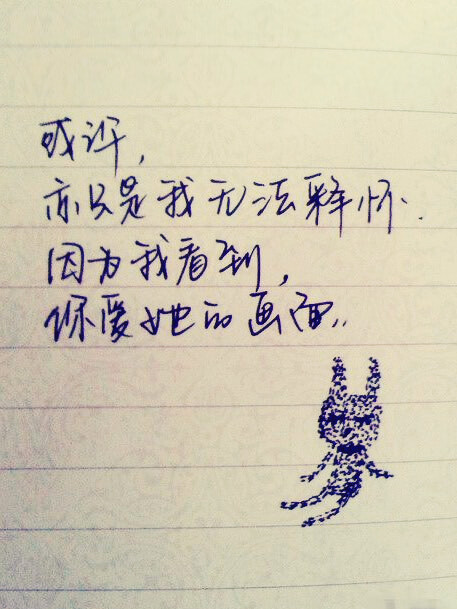 或许，
亦只是我无法释怀.
因为我看到，
你爱她的画面..